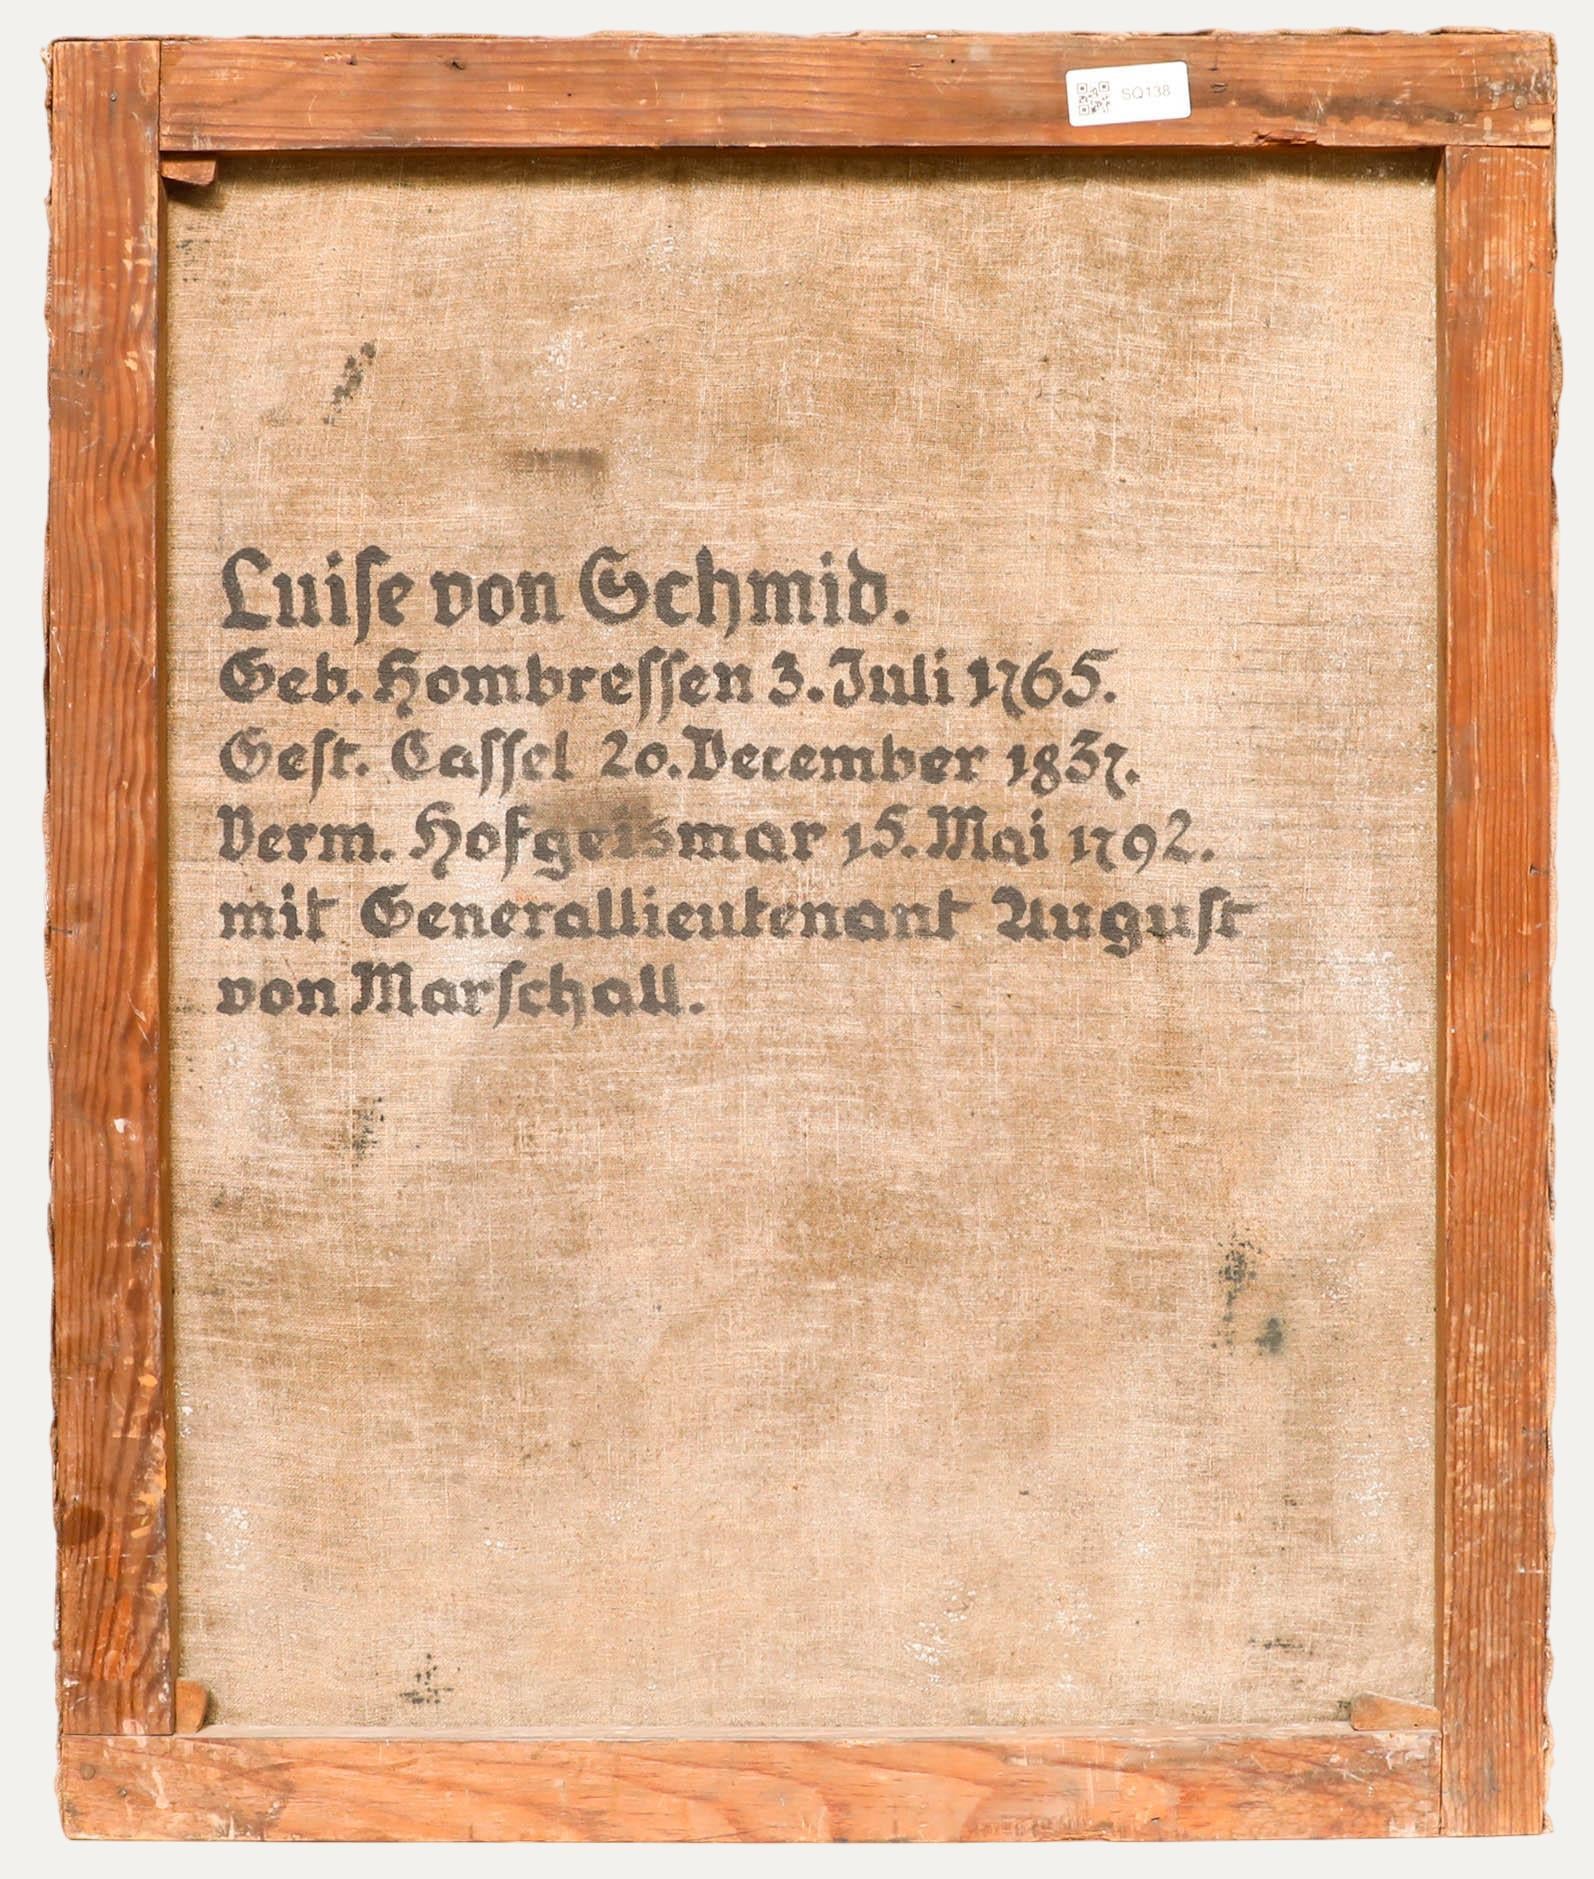 SQ138
Luiſe von Schmid.
Geb. Hombreſſen 3. Juli 1765.
Geſt. Caſſel 20. December 1837.
Verm. Hofgeismar 15. Mai 1792.
mit Generallieutenant Auguſt
von Marſchall.